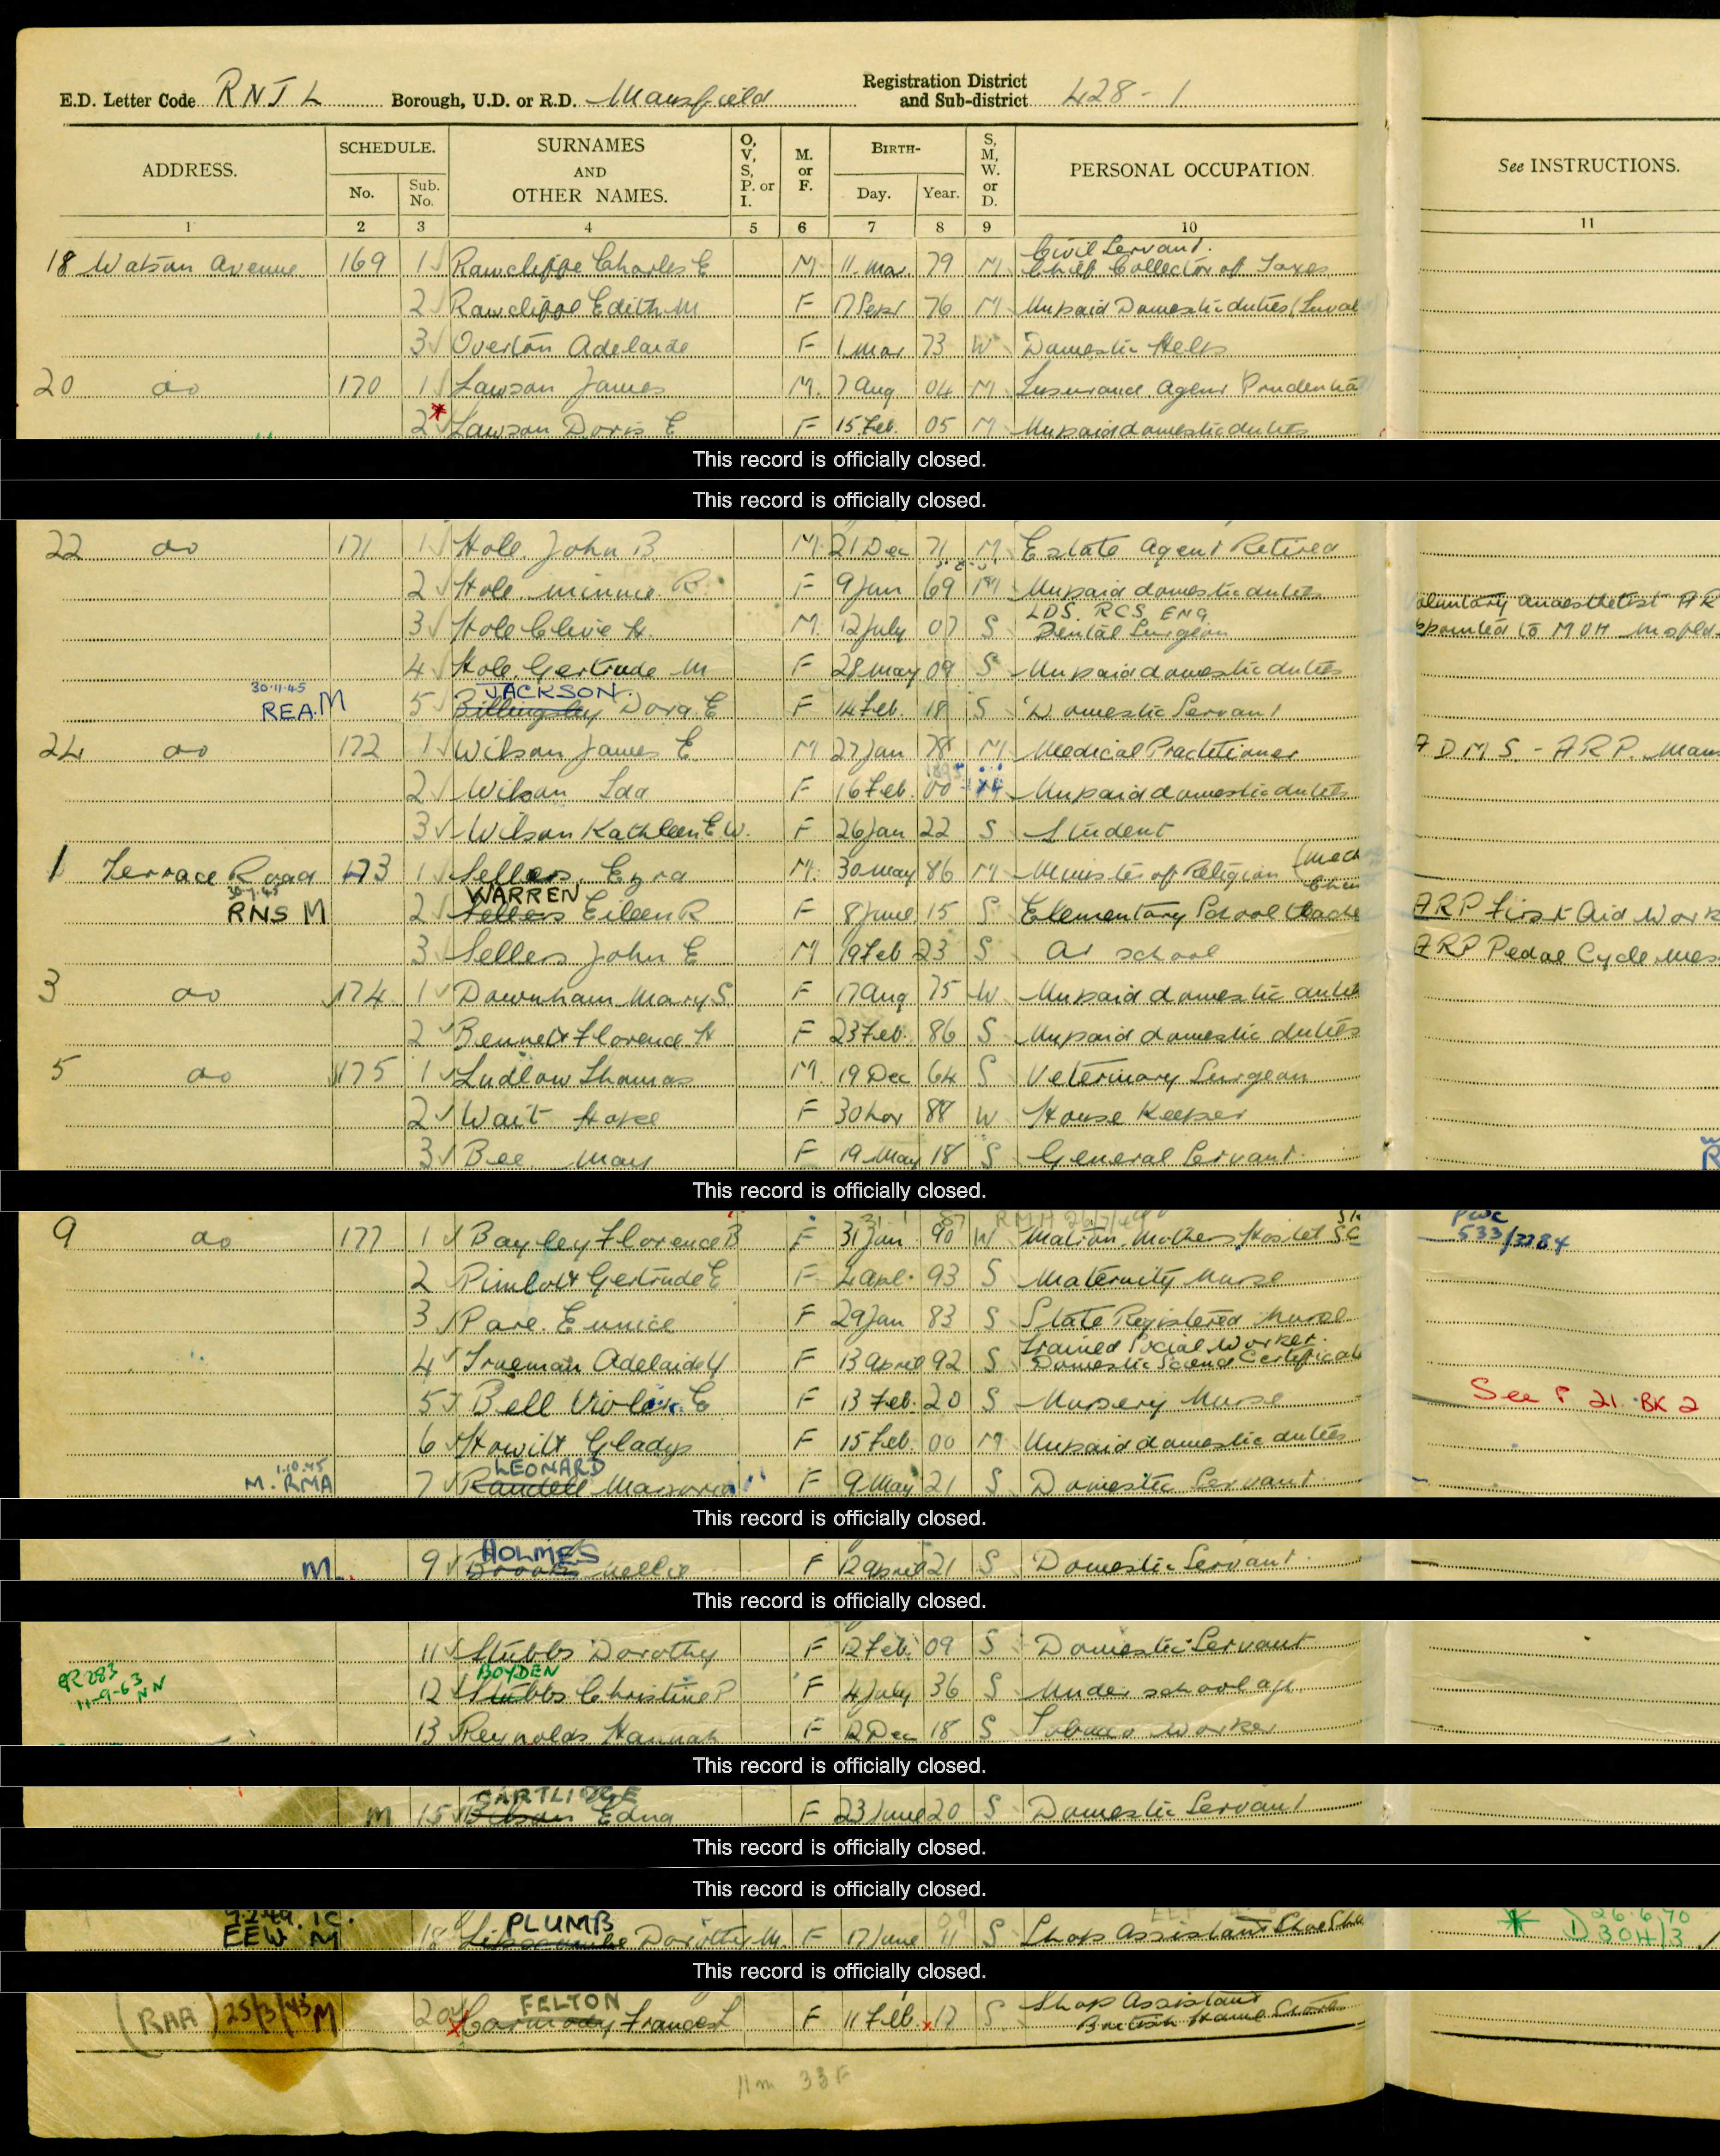 E.D. Letter Code RNJL Borough, U.D. or R.D. Mansfield Registration District and Sub-district 428-1
ADDRESS. SCHEDULE. No. Sub. No. SURNAMES AND OTHER NAMES. O, V, S, P. or I. M. or F. BIRTH- Day. Year. S, M, W. or D. PERSONAL OCCUPATION. See INSTRUCTIONS.
1 2 3 4 5 6 7 8 9 10 11
18 Watson Avenue 169 1 Rawcliffe Charles E M 11 Mar 79 M Civil Servant. Chief Collector of Taxes
2 Rawcliffe Edith M F 17 Sept 76 M Unpaid Domestic duties (Inval
3 Overton Adelaide F 1 Mar 73 W Domestic Help
20 do 170 1 Lawson James M. 7 Aug 04 M Insurance Agent Prudential
2 Lawson Doris E F 15 Feb. 05 M Unpaid domestic duties
This record is officially closed.
This record is officially closed.
22 do 171 1 Hole John B M 21 Dec 71 M Estate Agent Retired
2 Hole Minnie R. F 9 Jan 69 M Unpaid domestic duties
3 Hole Clive H. M. 12 July 07 S L.D.S. R.C.S ENG Dental Surgeon Voluntary Anaesthetist AR
ppointed to MOH
4 Hole Gertrude M F 28 May 09 S Unpaid domestic duties
30.11.45 REA. M 5 Billingsley JACKSON. Dora. E F 14 Feb. 18 S Domestic Servant
24 do 172 1 Wilson James E M 27 Jan 78 M Medical Practitioner A D M S. - A R P. Mans
2 Wilson Ida F 16 Feb. 00 Unpaid domestic duties
3 Wilson Kathleen E.W. F 26 Jan 22 S Student
1 Terrace Road 173 1 Sellers. Ezra M. 30 May 86 M Minister of Religion (Meth Chur
RNS M 2 Sellers WARREN Eileen R F 8 June 15 S Elementary School Teache ARP First Aid Work
3 Sellers John E M 19 Feb 23 S At school ARP Pedal Cycle Mes
3 do 174 1 Downham Mary S. F 17 Aug 75 W Unpaid domestic duties
2 Bennett Florence H F 23 Feb. 86 S Unpaid domestic duties
5 do 175 1 Ludlow Thomas M. 19 Dec 64 S Veterinary Surgeon
2 Wait F 30 Nov 88 W House Keeper
3 Bee. May F 19 May 18 S General Servant.
This record is officially closed.
9 do 177 1 Bayley Florence B F 31 Jan 90 W Matron. Mothers Hostel
533/3284
2 Gertrude E F 4 Apl. 93 S Maternity Nurse
3 Pare. Eunice F 29 Jan 83 S State Registered Nurse
4 Trueman Adelaide Y F 13 April 92 S Trained Social Worker. Domestic Science Certificate
5 Bell Violet. E F 13 Feb. 20 S Nursery Nurse See P 21. BK 2
6 Howitt Gladys F 15 Feb. 00 M Unpaid domestic duties
1.10.45 M. RMA 7 Randell LEONARD F 9 May 21 S Domestic Servant.
This record is officially closed.
M. 9 Brooks HOLMES Nellie F 12 April 21 S Domestic Servant.
This record is officially closed.
11 Stubbs Dorothy F 12 Feb. 09 S Domestic Servant
11-9-63 NN 12 Stubbs BOYDEN Christine P F 4 July 36 S Under school age
13 Reynolds Hannah F 12 Dec 18 S Tobacco Worker
This record is officially closed.
M 15 CARTLIDGE Edna F 23 June 20 S Domestic Servant
This record is officially closed.
This record is officially closed.
EEW M 18 Lipscombe PLUMB Dorothy M. F 17 June 11 S Shop Assistant Shoe Sho 26.6.70
This record is officially closed.
(RAA) 25/3/43 M 20 Carmody FELTON Frances L F 11 Feb. 17 S Shop Assistant British Home Stores
11 m 33 F